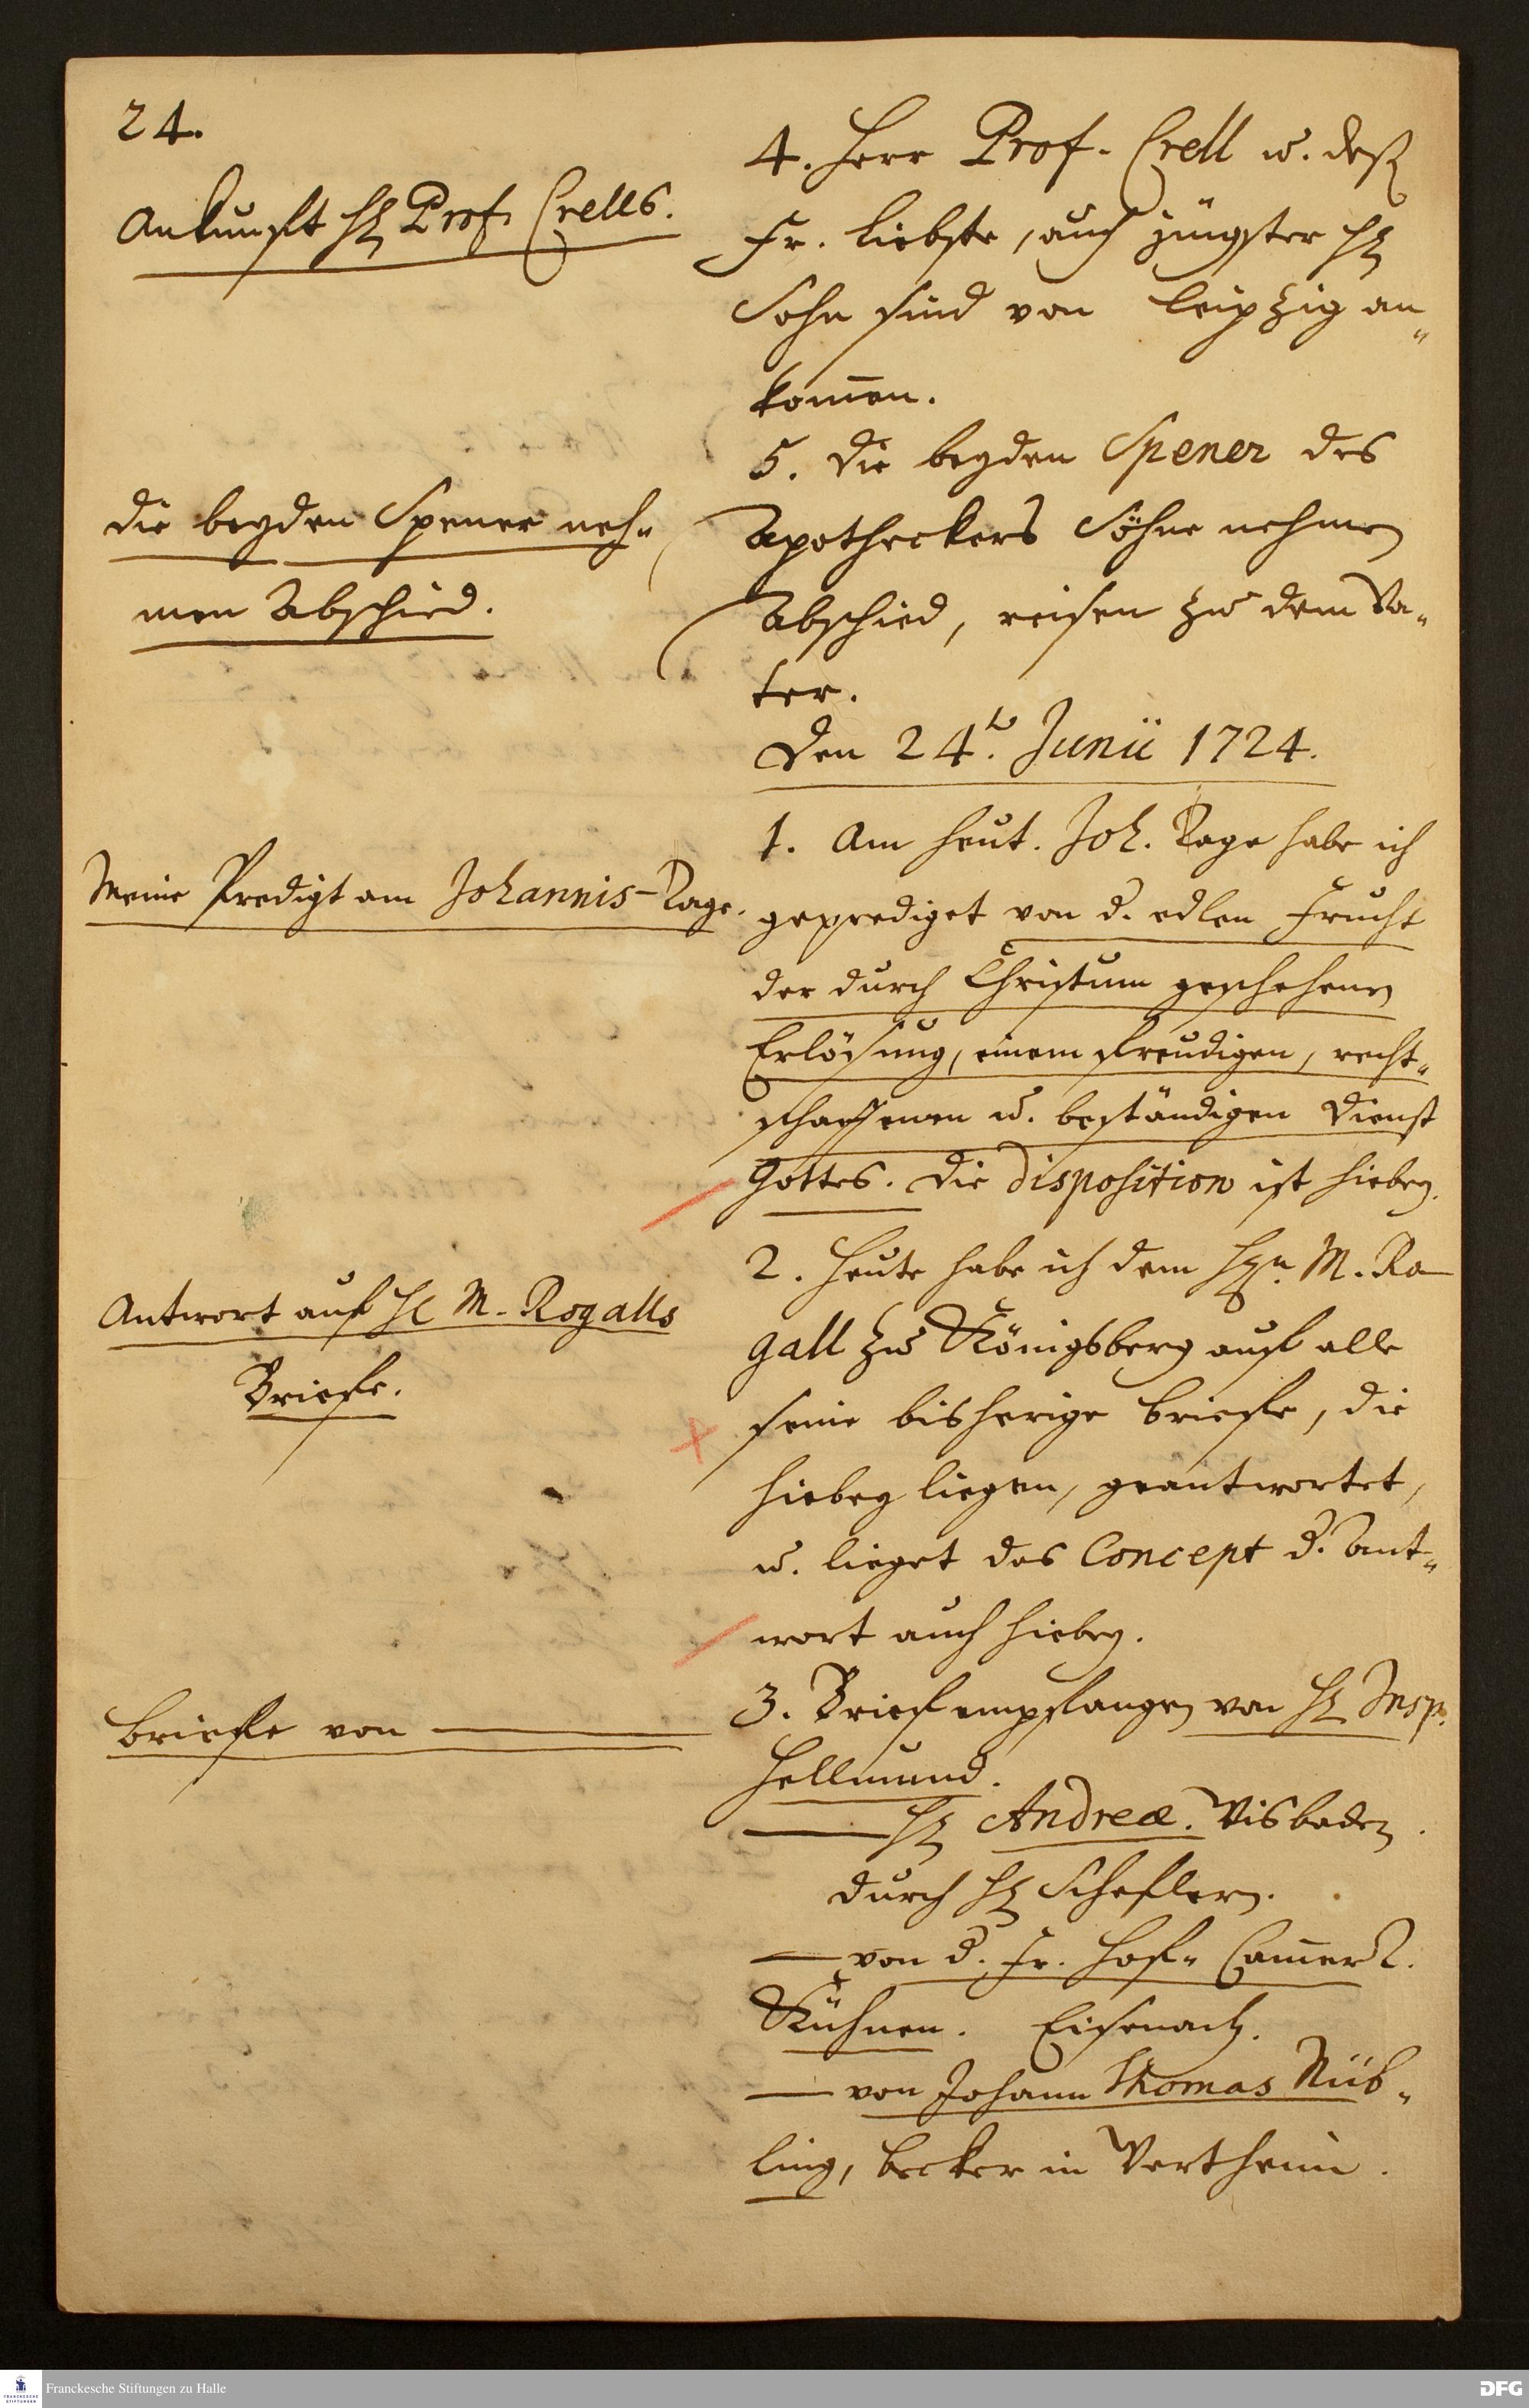 24.
Ankunfft H. Prof. Crells.
die beyden Spener neh-
men Abschied.
Meine Predigt am Johannis-Tage.
Antwort auf H. M. Rogalls
Briefe.
Briefe von
4. Herr Prof. Crell u. deß
Fr. Liebste, auch jüngster H.
Sohn sind von Leipzig an-
kom̄en.
5. Die beyden Spener des
Apotheckers Söhne nehmen
Abschied, reisen zu dem Va-
ter.
Den 24t. Junii 1724.
1. Am heut. Joh. Tage habe ich
geprediget von d. edlen Frucht
der durch Christum geschehenen
Erlösung, einem freudigen, recht-
schaffenen u. beständigen Dienst
Gottes. Die disposition ist hiebey.
2. Heute habe ich dem Hn. M. Ro
gall zu Königsberg auf alle
seine bisherige Briefe, die
hiebey liegen, geantwortet,
u. lieget das Concept d. Ant-
wort auch hiebey.
3. Brief empfangen von H. Insp.
Hellmund.
H. Andreæ. Wisbaden.
durch H. Scheflern.
von d. Fr. Hof- Cam̄err.
Kühnen. Eisenach.
von Johann Thomas Nüb-
ling, Becker in Wertheim.
Franckesche Stiftungen zu Halle
FRANCKESCHE
STIFTUNGEN
DFG